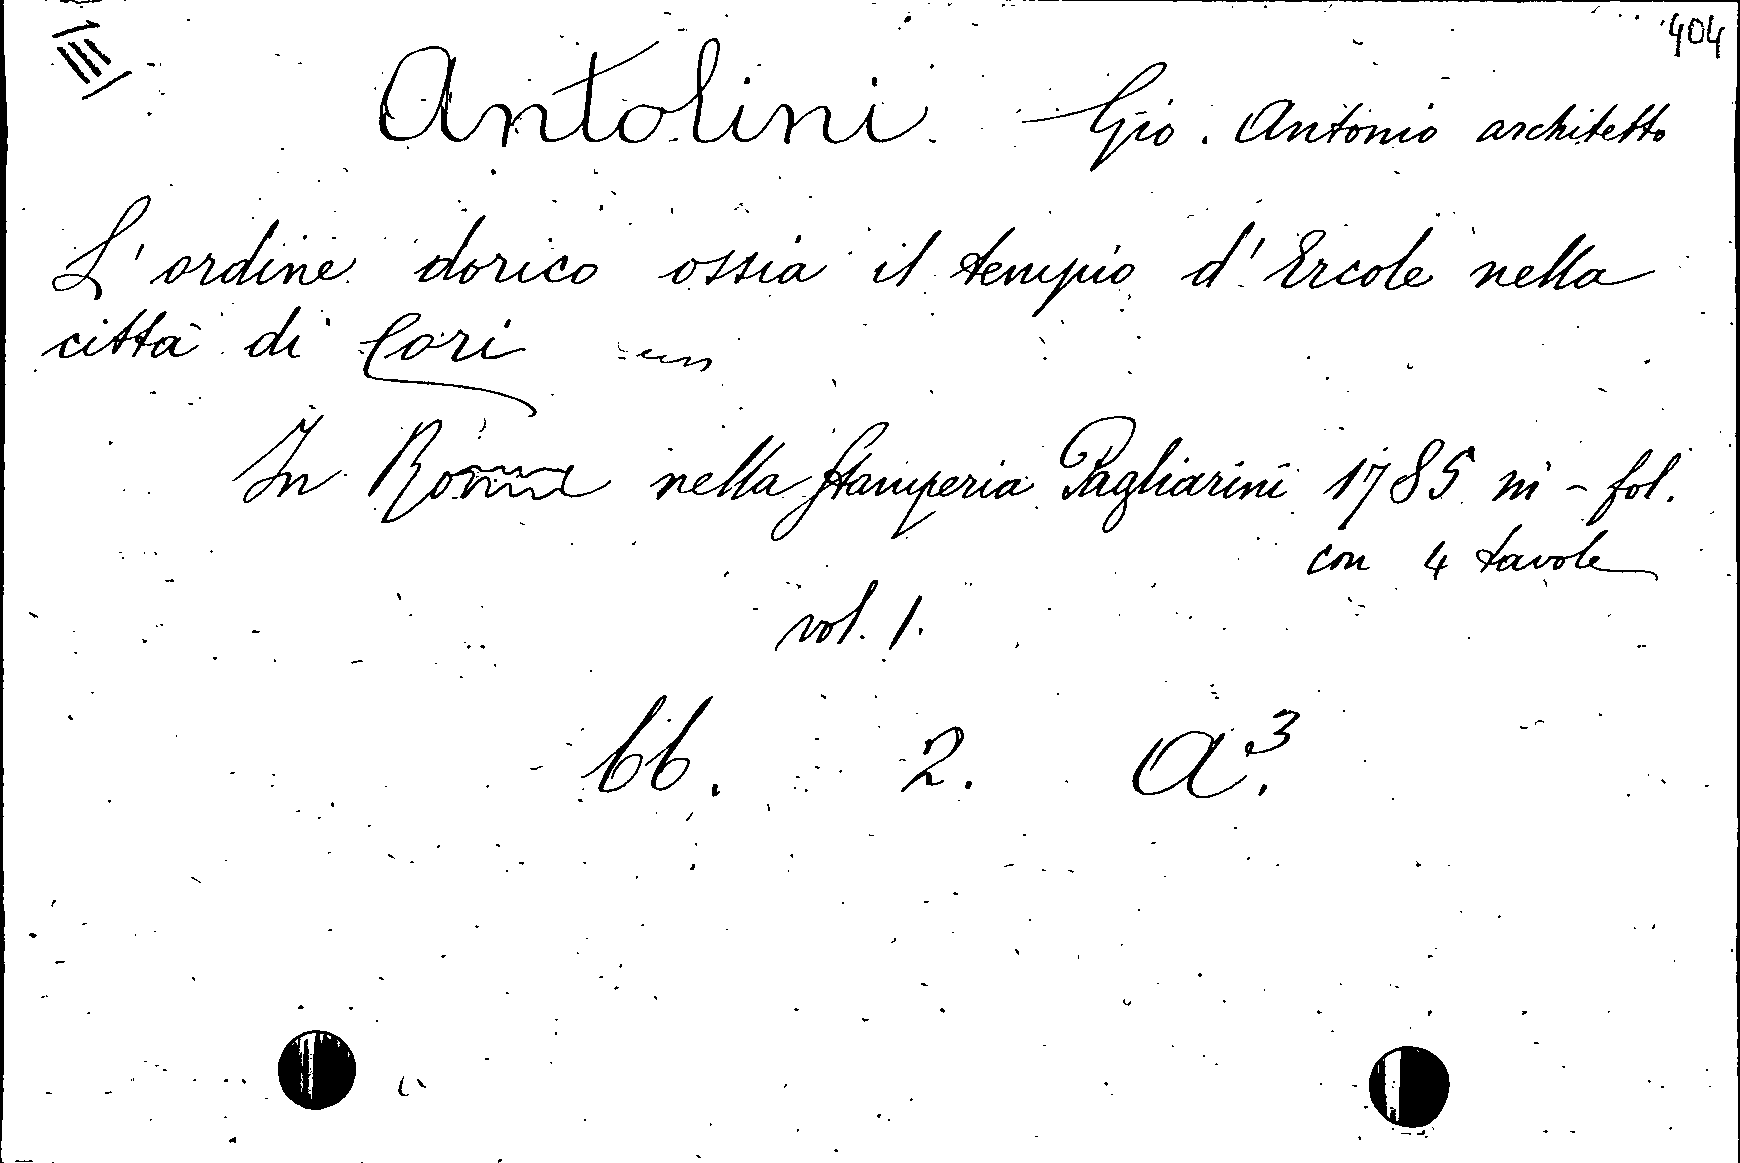 404
Antolini Gio. Antonio architetto
L'ordine dorico ossia il tempio d'Ercole nella
città di Cori
In Roma nella Stamperia Pagliarini 1785 in-fol.
con 4 tavole
vol. 1.
66. 2. A³.